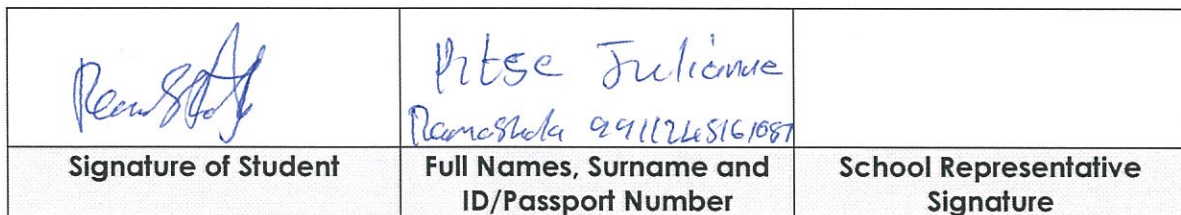 Pitse Julianne
Ramashala
Signature of Student
Full Names, Surname and
ID/Passport Number
School Representative
Signature